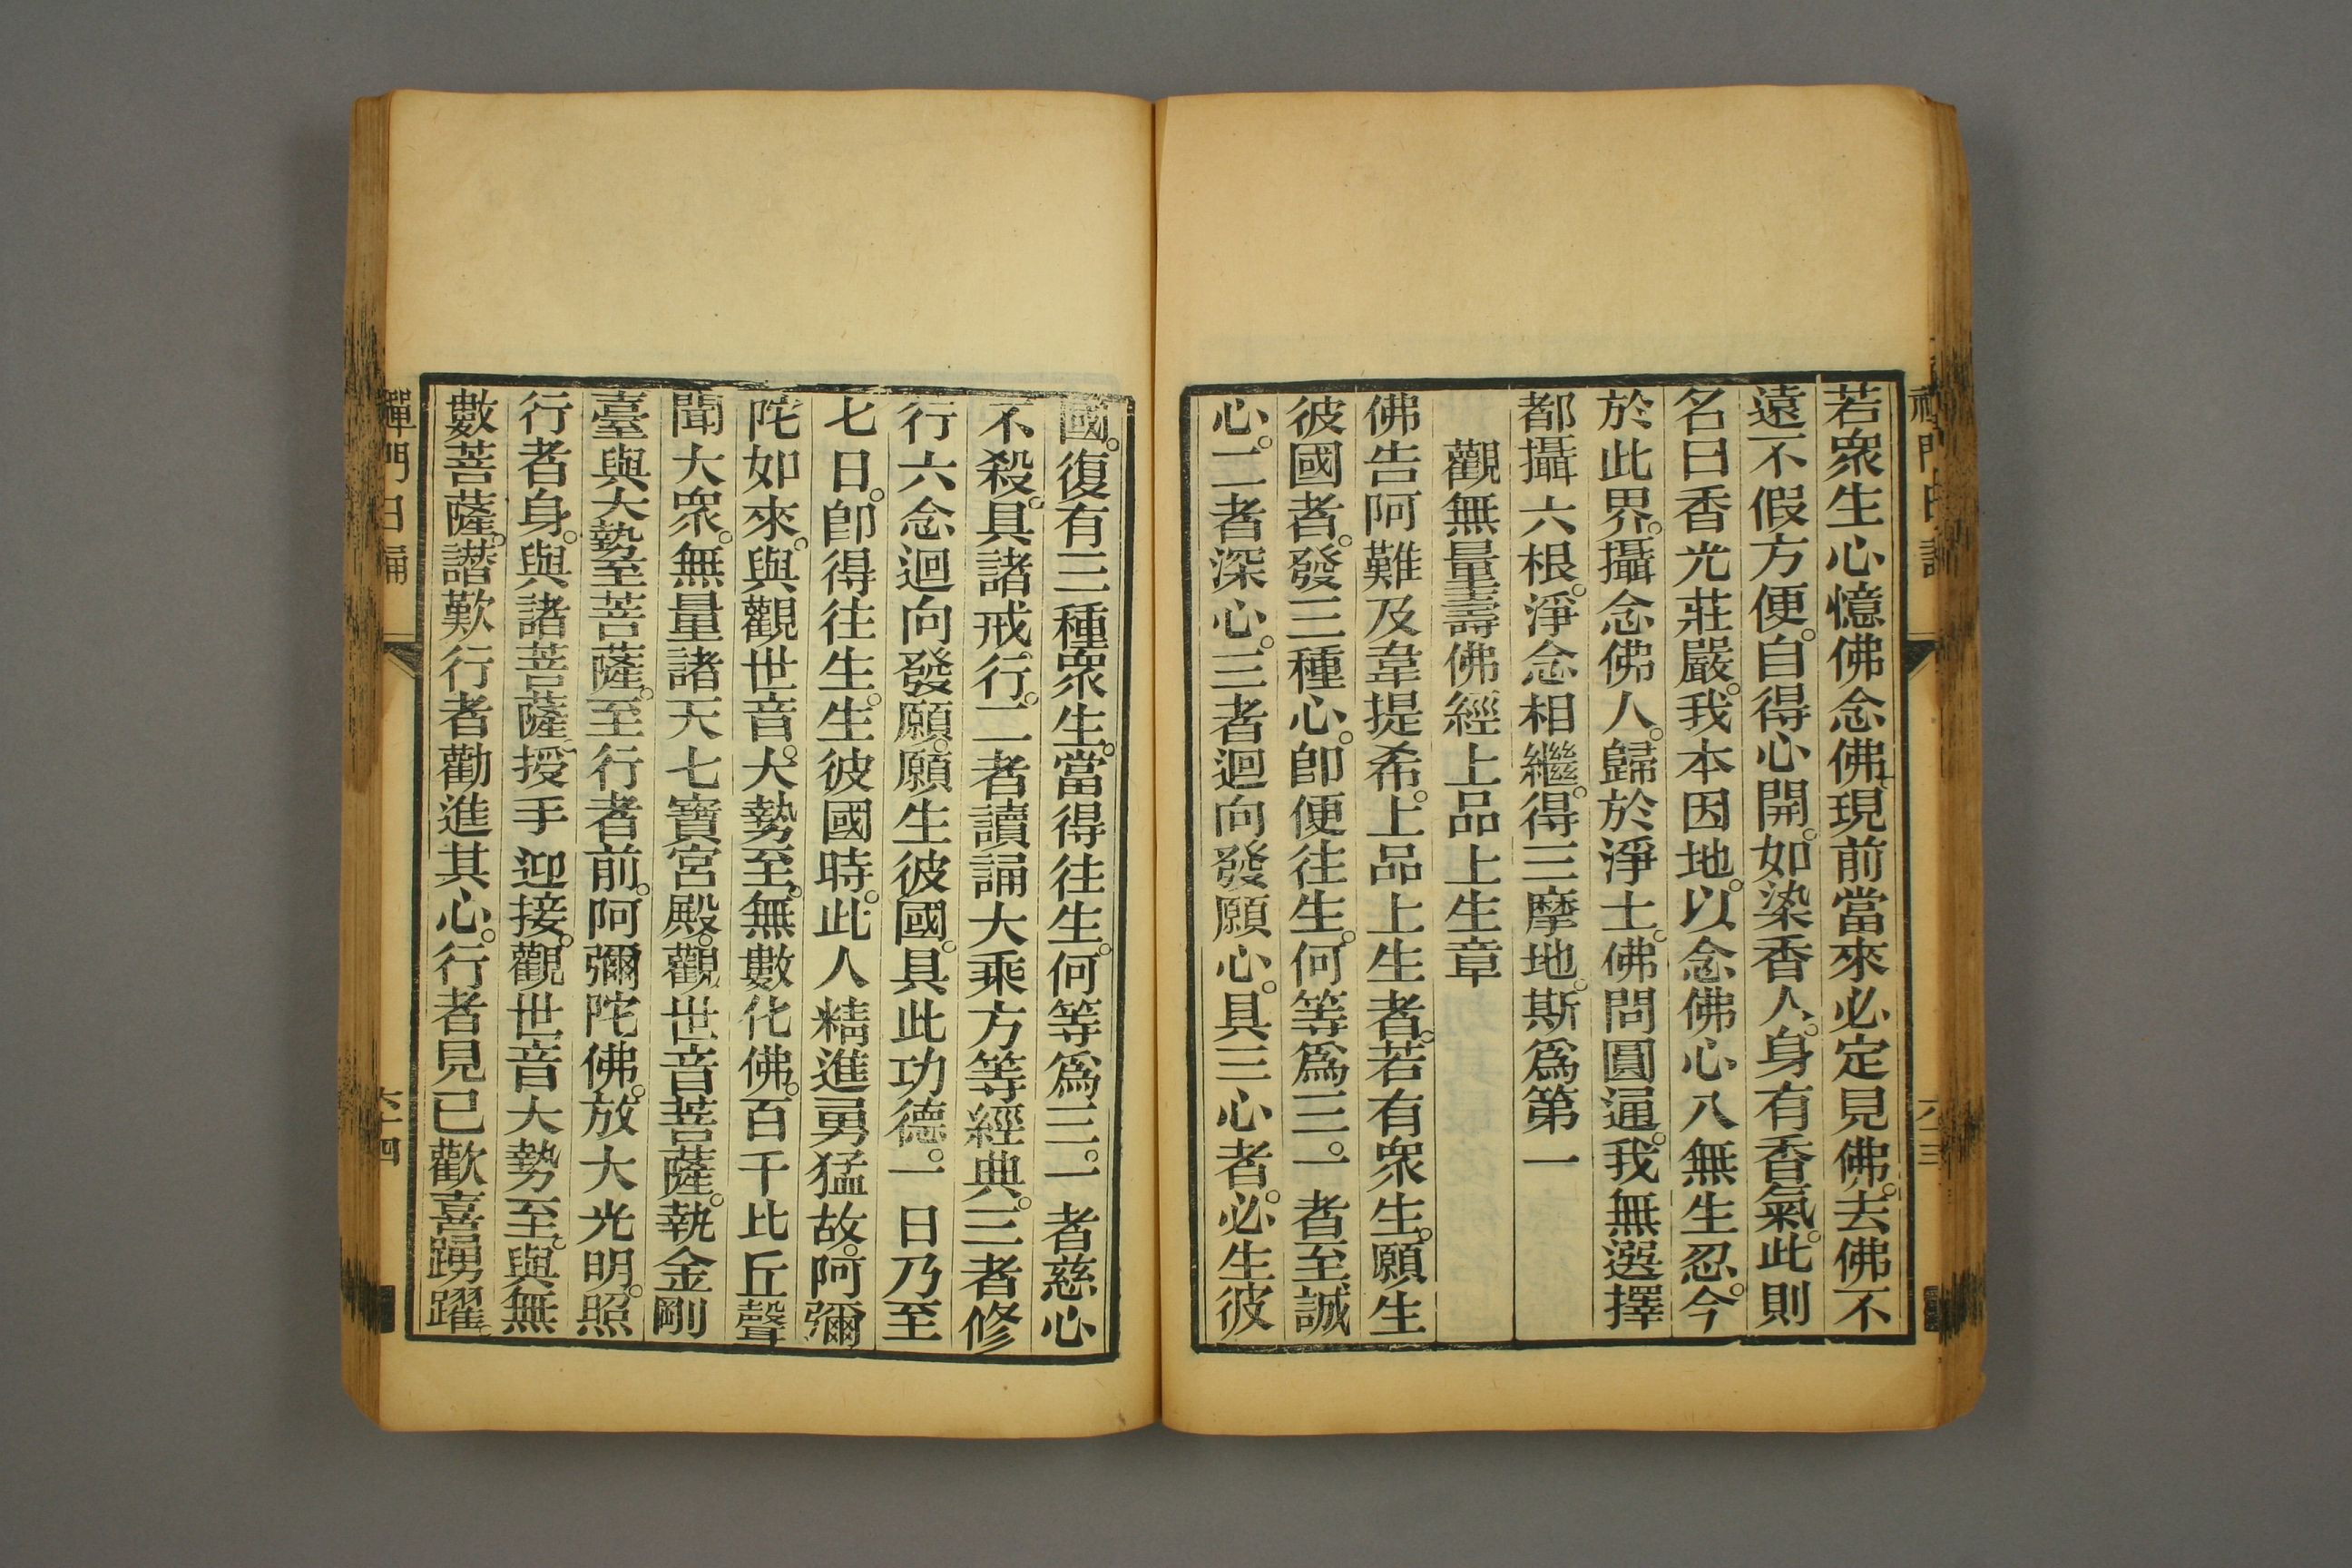 若衆生心憶佛念佛現前當來必定見佛。去佛不
遠不假方便。自得心開。如染香人。身有香氣。此則
名曰香光莊嚴。我本因地。以念佛心入無生忍。今
於此界。攝念佛人。歸於淨土。佛問圓通。我無選擇
都攝六根。淨念相繼。得三摩地。斯爲第一
觀無量壽佛經上品上生章
佛告阿難及韋提希。上品上生者。若有衆生。願生
彼國者。發三種心。即便往生。何等爲三。一者至誠
心。二者深心。三者迴向發願心。具三心者。必生彼
國。復有三種衆生。當得往生。何等爲三。一者慈心
不殺。具諸戒行。二者讀誦大乘方等經典。三者修
行六念迴向發願。願生彼國。具此功德。一日乃至
七日。卽得往生。生彼國時。此人精進勇猛故。阿彌
陀如來。與觀世音。大勢至。無數化佛。百千比丘聲
聞大衆。無量諸天七寶宮殿。觀世音菩薩。執金剛
臺與大勢至菩薩。至行者前。阿彌陀佛。放大光明。照
行者身。與諸菩薩授手迎接。觀世音大勢至。與無
數菩薩。讃歎行者勸進其心。行者見已歡喜踴躍。
禪門日誦
六十四